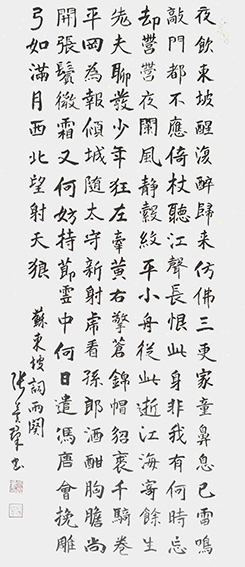 夜飲東坡醒復醉歸来仿佛三更家童鼻息已雷鳴
敲門都不應倚杖聽江聲長恨此身非我有何時忘
却營營夜闌風静縠紋平小舟從此逝江海寄餘生
老夫聊發少年狂左牽黄右擎蒼錦帽貂裘千騎卷
平岡為報傾城隨太守新射虎看孫郎酒酣胸膽尚
開張鬢微霜又何妨持節雲中何日遣馮唐會挽雕
弓如滿月西北望射天狼
蘇東坡詞兩闋